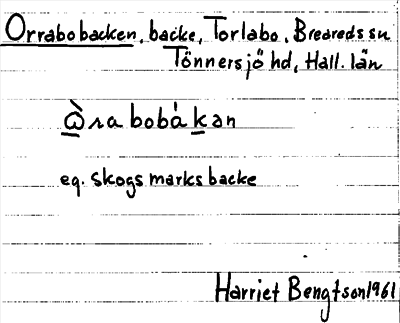 Orrabobacken, backe, Torlabo, Breareds sn
Tönnersjö hd, Hall. län
ὼrabobàkan
eg. skogsmarksbacke
Harriet Bengtson 1961